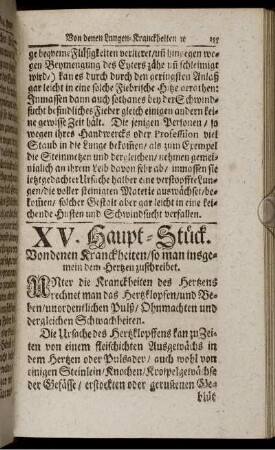 Von denen Lungen-Kranckheiten ꝛc 155
ge beqveme Flüssigkeiten verlieret/uñ hingegen we-
gen Beymengung des Eyters zähe uñ schleimigt
wird/) kan es durch durch den geringsten Anlaß
gar leicht in eine solche Fiebrische Hitze gerathen:
Inmassen dann auch sothanes bey der Schwind-
sucht befindliches Fieber gleich einigen andern kei-
ne gewisse Zeit hält. Die jenigen Personen/ so
wegen ihres Handwercks oder Profession viel
Staub in die Lunge bekom̃en/ als zum Exempel
die Steinmetzen und dergleichen/ nehmen gemei-
niglich an ihrem Leib davon sehr ab/ inmassen sie
letztgedachter Ursache halber eine verstopffte Lun-
gen/die voller steinigten Materie auswächset/be-
kom̃en/ solcher Gestalt aber gar leicht in eine kei-
chende Husten und Schwindsucht verfallen.
XV. Haupt-Stück.
Von denen Kranckheiten/ so man insge-
mein dem Hertzen zuschreibet.
UNter die Kranckheiten des Hertzens
rechnet man das Hertzklopfen/und Be-
ben/unordentlichen Pulß/ Ohnmachten und
dergleichen Schwachheiten.
Die Ursache des Hertzklopffens kan zu Zei-
ten von einem fleischichten Ausgewächs in
dem Hertzen oder Pulsader/ auch wohl von
einigen Steinlein/ Knochen/ Krospelgewächse
der Gefässe/ erstockten oder gerunnenen Ge-
blüt